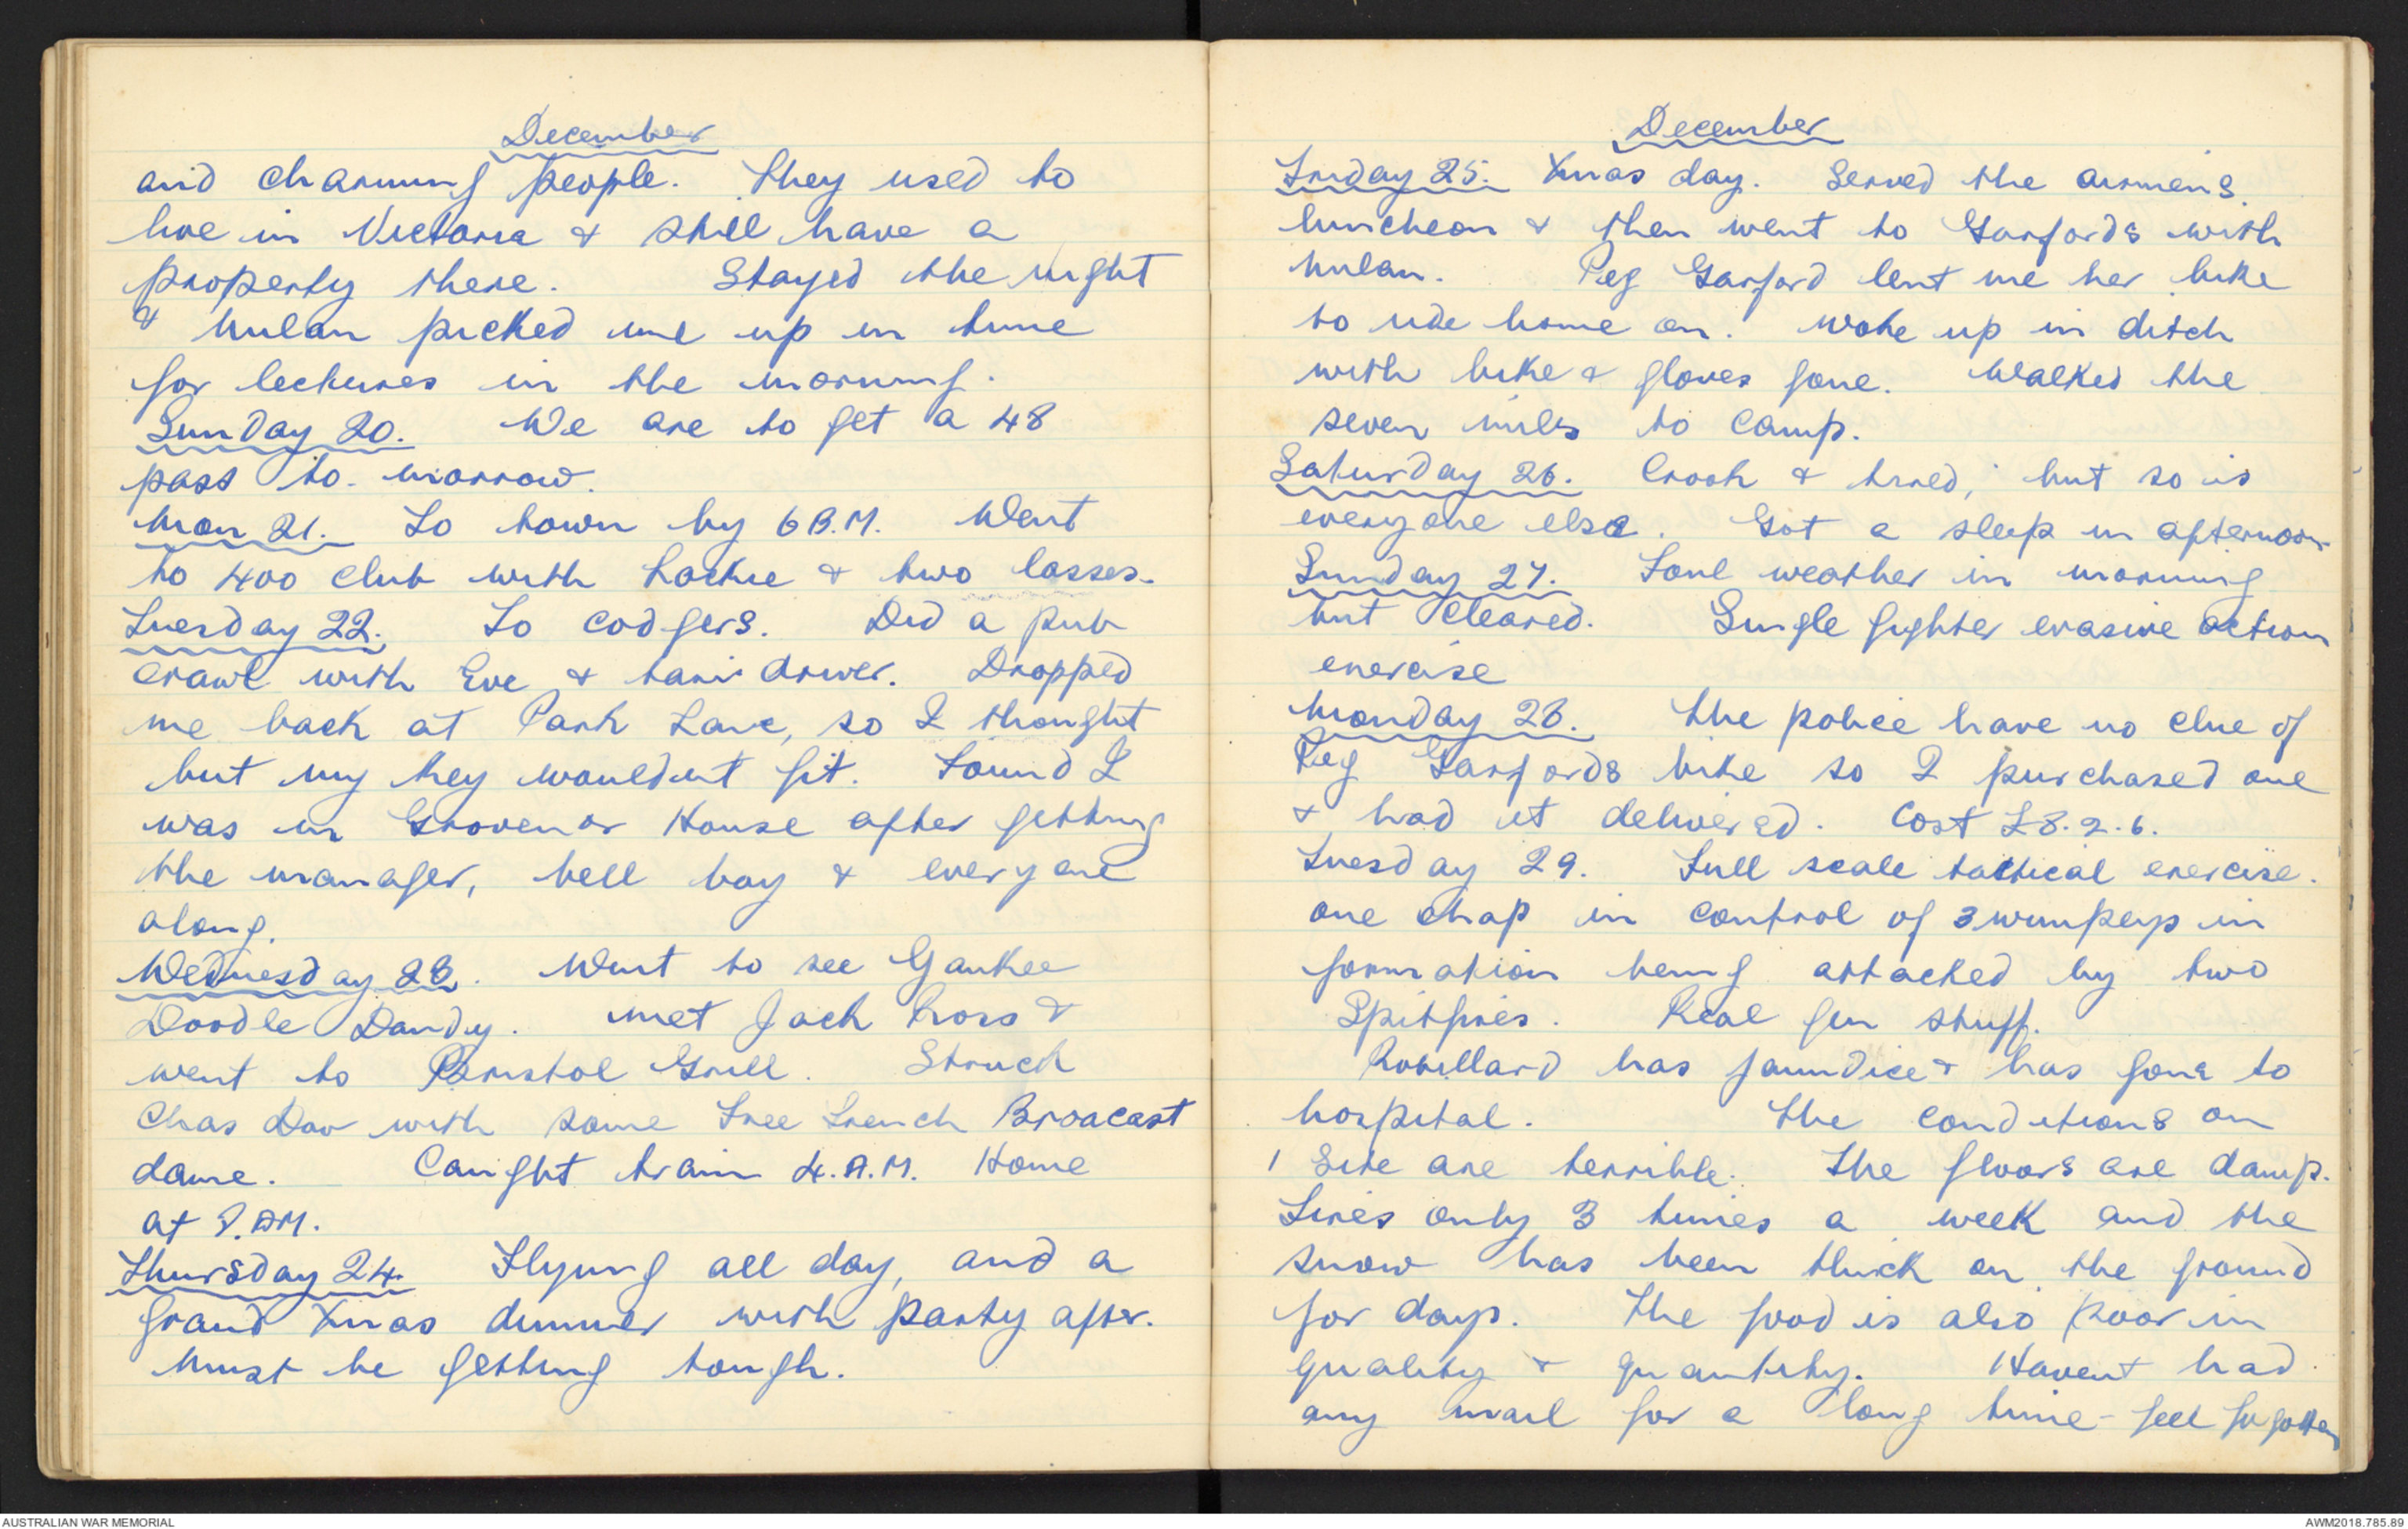 December
and charming people. They used to
live in Victoria & still have a
property there. Stayed the night
& Mulan picked me up in time
for lectures in the morning.
Sunday 20. We are to get a 48
pass to-morrow.
Mon 21. To town by 6 P.M. Went
to 400 club with Lockie & two lasses.
Tuesday 22. To codgers. Did a pub
crawl with Eve & taxi driver. Dropped
me back at Park Lane, so I thought
but my key wouldent fit. Found I
was in Grovenor House after getting
the manager, bell boy & everyone
along.
Wednesday 23. Went to see Yankee
Doodle Dandy. Met Jack Cross &
went to Grill. Struck
Chas with some Free French Broacast
dame. Caught train 4.A.M. Home
at AM.
Thursday 24. Flying all day, and a
grand Xmas dinner with party after.
Must be getting tough.
December
Friday 25. Xmas day. Served the airmens
luncheon & then went to Garfords with
Mulan. Peg Garford lent me her bike
to ride home on. Woke up in ditch
with bike & gloves gone. Walked the
seven miles to camp.
Saturday 26. Crook & tired, but so is
everyone else. Got a sleep in afternoon
Sunday 27. Foul weather in morning
but cleared. Single fighter evasive action
exercise
Monday 28. The police have no clue of
Peg Garfords bike so I purchased one
& had it delivered. Cost £8.2.6.
Tuesday 29. Full scale tactical exercise.
one chap in control of 3 wimpeys in
formation being attacked by two
Spitfires. Real gen stuff.
Robillard has jaundice & has gone to
hospital. The conditions on
1 Site are terrible. The floors are damp.
Fires only 3 times a week and the
snow has been thick on the ground
for days. The food is also poor in
quality & quantity. Havent had
any mail for a long time - feel forgotten
AUSTRALIAN WAR MEMORIAL
AWM2018.785.89